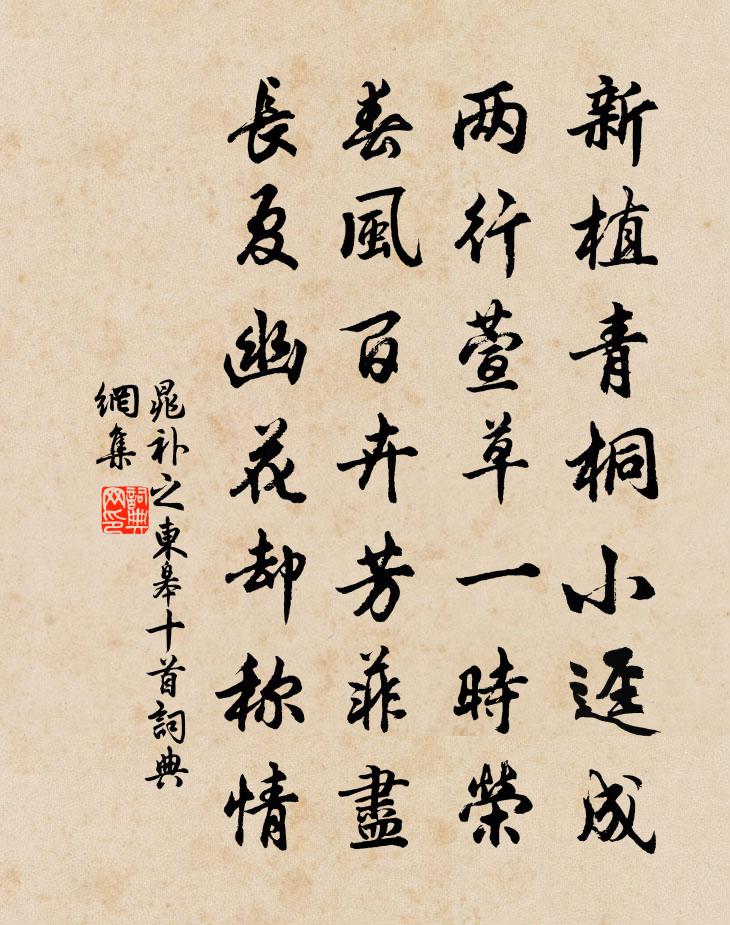 新植青桐小逕成
两行萱草一時榮
春風百卉芳菲盡
長夏幽花却称情
晁补之東皋十首詞典
網集
詞典
网印